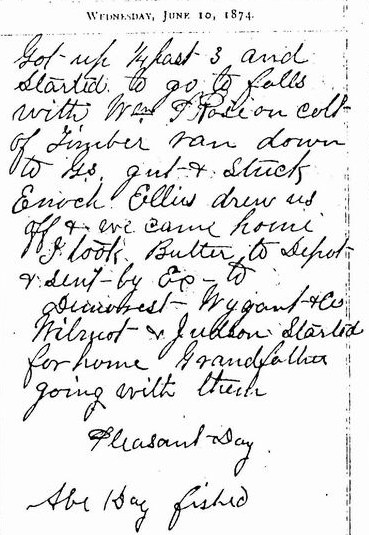 WEDNESDAY, JUNE 10, 1874.
Got up ¼ past 3 and
Started to go to falls
with Wm on colt
of Timber ran down
to gut & Stuck
Enoch Ellis drew us
off & we came home
I took Butter to Depot
& sent by Ex to
Demorest Wygant & Co
Wilmot & Judson Started
for home Grandfather
going with them
Pleasant Day
Abe Day fished